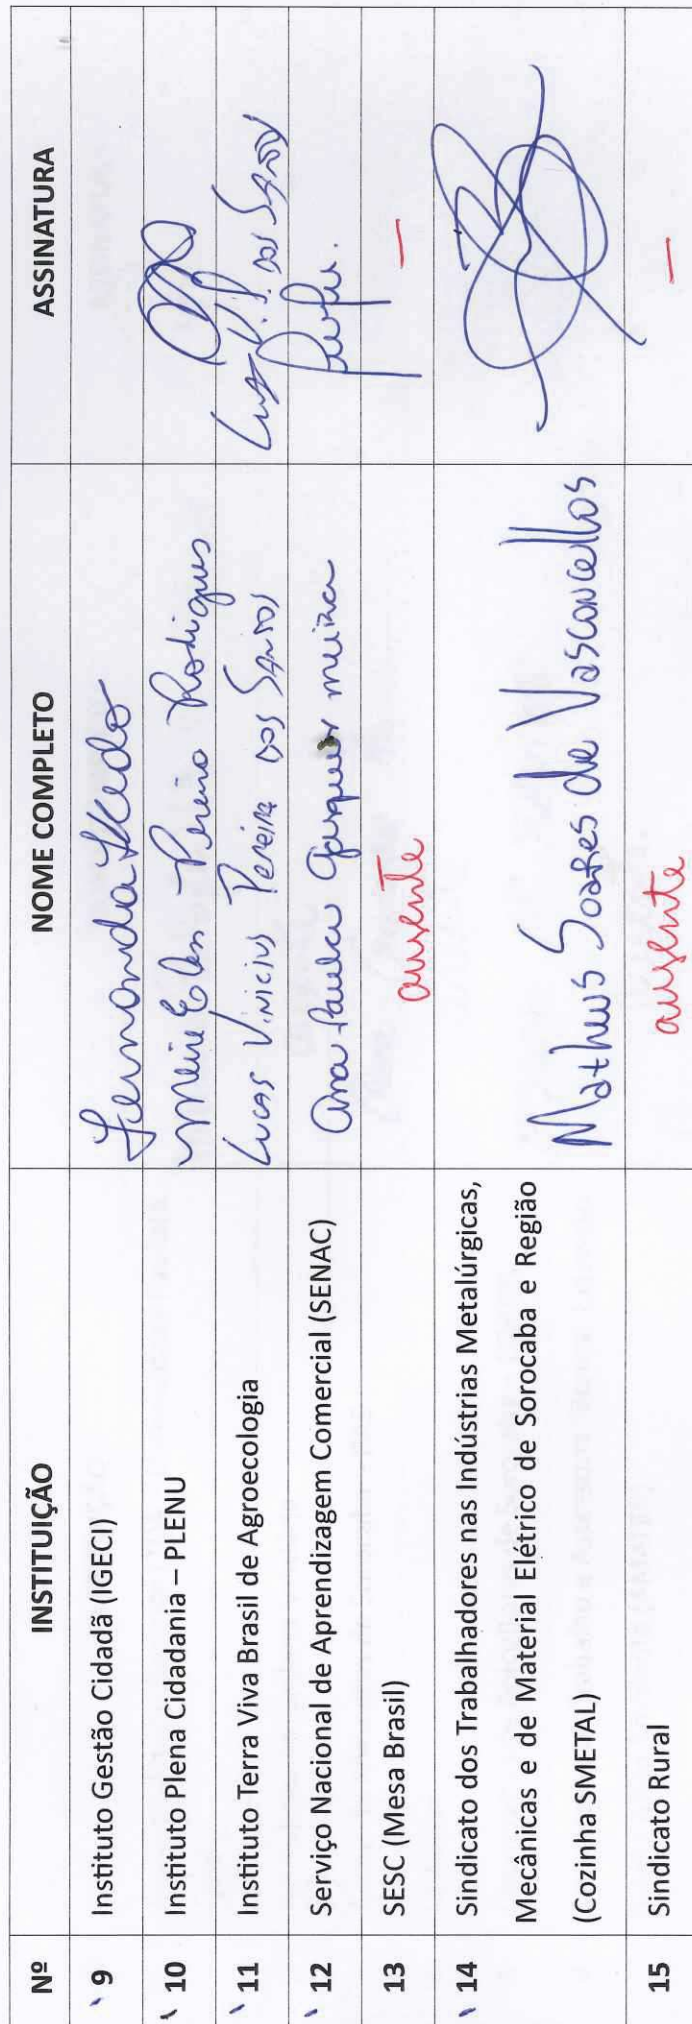 Nº INSTITUIÇÃO NOME COMPLETO ASSINATURA
9 Instituto Gestão Cidadã (IGECI) Fernanda
10 Instituto Plena Cidadania – PLENU Meire Elen Pereira Rodrigues
11 Instituto Terra Viva Brasil de Agroecologia Lucas Vinicius Pereira dos Santos Lucas V. P. dos Santos
12 Serviço Nacional de Aprendizagem Comercial (SENAC) Ana Paula
13 SESC (Mesa Brasil) ausente —
14 Sindicato dos Trabalhadores nas Indústrias Metalúrgicas,
Mecânicas e de Material Elétrico de Sorocaba e Região
(Cozinha SMETAL) Matheus Soares de Vasconcellos
15 Sindicato Rural ausente —